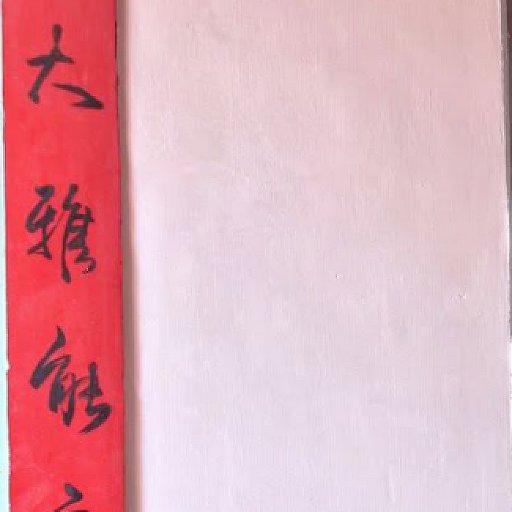 大雅能